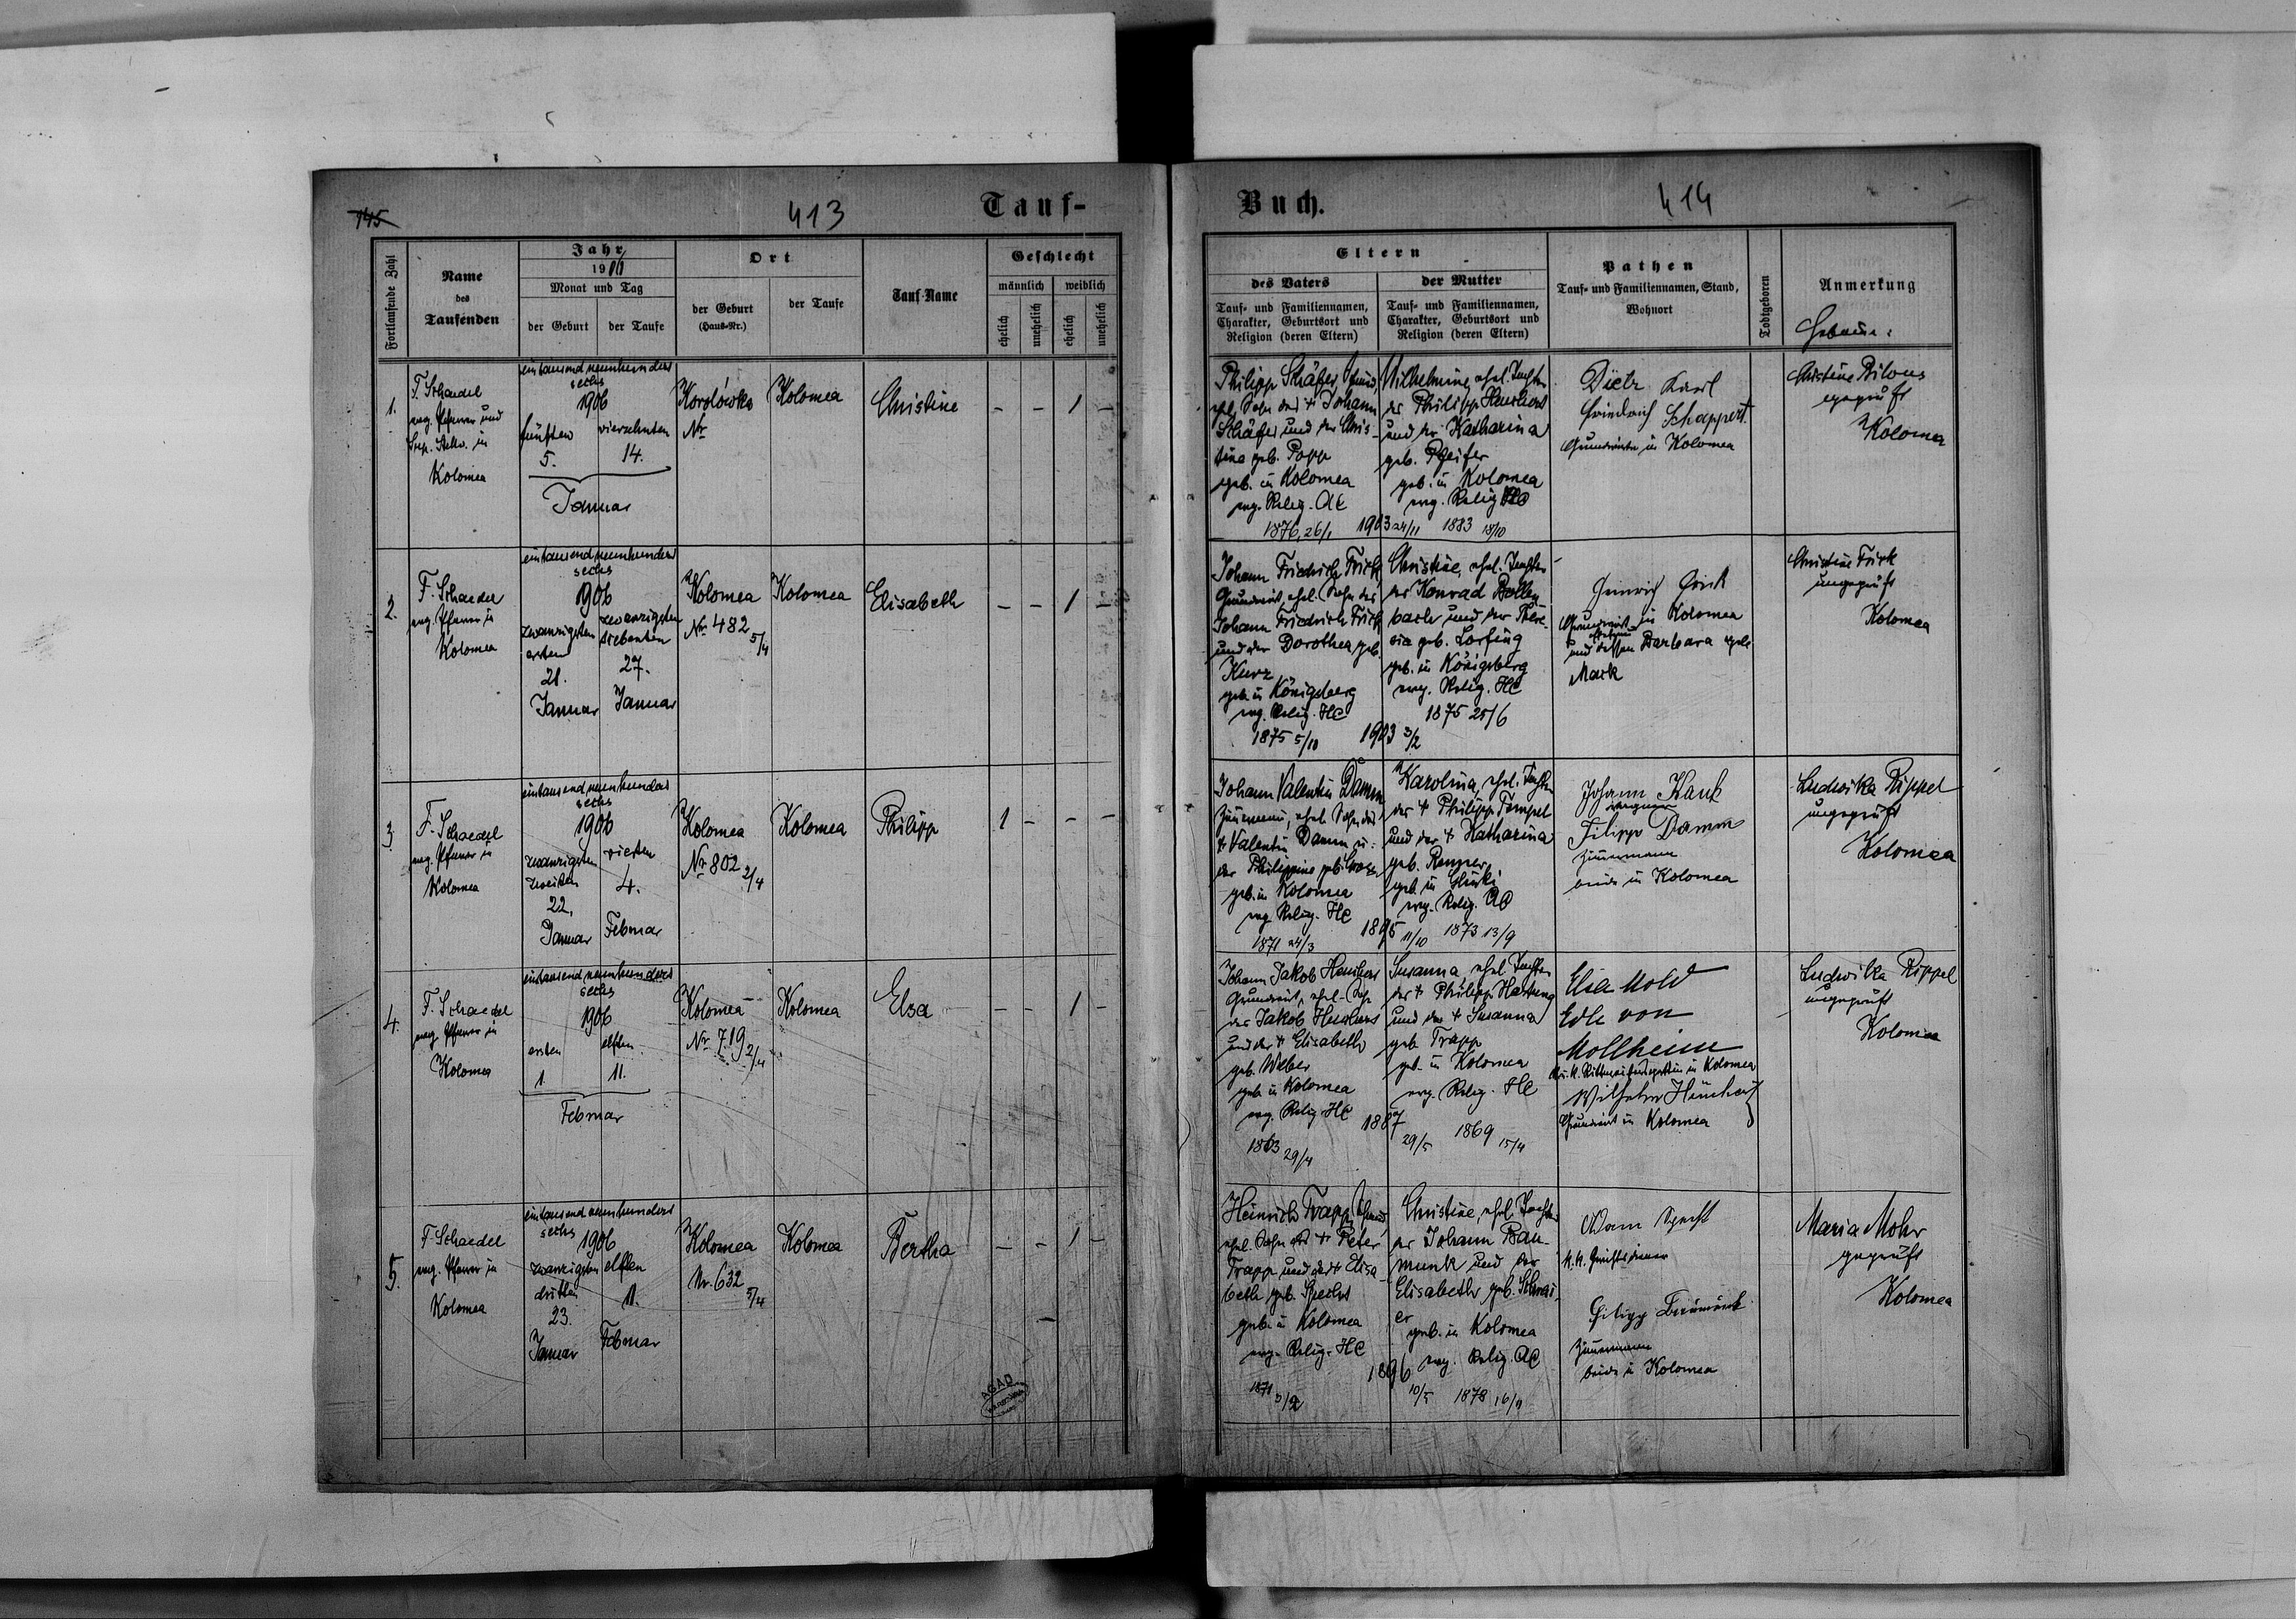 145
413
Tauf-
Fortlaufende Zahl
Name
des
Taufenden
Jahr
1906
Monat und Tag
der Geburt
der Taufe
Ort
der Geburt
(Haus-Nr.)
der Taufe
Tauf-Name
Geschlecht
männlich
weiblich
ehelich
unehelich
ehelich
unehelich
1.
F. Schaedel
evg. Pfarrer und
Sup. Stellv. in
Kolomea
eintausend neunhundert
sechs
1906
fünften
vierzehnten
5.
14.
Januar
Korolówka
Nr
Kolomea
Christine
- - 1 -
2.
F. Schaedel
evg. Pfarrer in
Kolomea
eintausend neunhundert
sechs
1906
zwanzigsten
ersten
21.
Januar
zwanzigsten
siebenten
27.
Januar
Kolomea
Nr 482 5/4
Kolomea
Elisabeth
- - 1 -
3.
F. Schaedel
evg. Pfarrer in
Kolomea
eintausend neunhundert
sechs
1906
zwanzigsten
zweiten
22.
Januar
vierten
4.
Februar
Kolomea
Nr 802 2/4
Kolomea
Philipp
1 - - -
4.
F. Schaedel
evg. Pfarrer in
Kolomea
eintausend neunhundert
sechs
1906
ersten
elften
1.
11.
Februar
Kolomea
Nr 719 2/4
Kolomea
Elsa
- - 1 -
5.
F. Schaedel
evg. Pfarrer in
Kolomea
eintausend neunhundert
sechs
1906
zwanzigsten
dritten
23.
Januar
elften
11.
Februar
Kolomea
Nr. 632 5/4
Kolomea
Bertha
- - 1 -
AGAD
Buch.
414
Eltern
des Vaters
Tauf- und Familiennamen,
Charakter, Geburtsort und
Religion (deren Eltern)
der Mutter
Tauf- und Familiennamen,
Charakter, Geburtsort und
Religion (deren Eltern)
Pathen
Tauf- und Familiennamen, Stand,
Wohnort
Todtgeboren
Anmerkung
Philipp Schäfer,
ehl. Sohn des + Johann
Schäfer und der Chris-
tina geb. Popp
geb. in Kolomea
evg. Relig. AC
1876, 26/1
1903 24/11
Wilhelmine, ehel. Tochter
des Philipp
und der Katharina
geb. Pfeifer
geb. in Kolomea
evg. Relig. HC
1883 18/10
Dietz Karl
Friedrich Schappert
Grundwirte in Kolomea
Christine
geprüft
Kolomea
Johann Friedrich Frick
Grundwirt, ehel. Sohn des
Johann Friedrich Frick
und der Dorothea geb.
Kurz
geb. in Königsberg
evg. Relig. HC
1875 5/10
1903 3/2
Christine, ehel. Tochter
des Konrad Bollen
bach und der There-
sia geb. Lorfing
geb. in Königsberg
evg. Relig. HC
1875 25/6
Heinrich Frick
Grundwirt in Kolomea
und dessen Ehefrau Barbara geb.
Mark
Christine Frick
ungeprüft
Kolomea
Johann Valentin Damm
Zimmermann, ehel. Sohn des
+ Valentin Damm u.
der Philippine geb.
geb. in Kolomea
evg. Relig. HC
1871 24/3
1895 11/10
Karolina, ehel. Tochter
des + Philipp Tempel
und der + Katharina
geb. Renner
geb. in
evg. Relig. AC
1873 13/9
Johann Kauk
Wagner
Filipp Damm
Zimmermann
beide in Kolomea
Ludwika Rippel
ungeprüft
Kolomea
Johann Jakob
Grundwirt, ehel. Sohn
des Jakob
und der + Elisabeth
geb. Weber
geb. in Kolomea
evg. Relig. HC
1863 29/4
1887 29/5
Susanna, ehel. Tochter
des + Philipp Hartung
und der + Susanna
geb. Trapp
geb. in Kolomea
evg. Relig. HC
1869 15/4
Elsa Mold
Edle von
Mollheim
k.u.k. Rittmeistersgattin in Kolomea
Wilhelm
Grundwirt in Kolomea
Ludwika Rippel
ungeprüft
Kolomea
Heinrich Trapp
ehel. Sohn des + Peter
Trapp und der + Elisa-
beth geb. Specht
geb. in Kolomea
evg. Relig. HC
1871 3/2
1896 10/5
Christine, ehel. Tochter
des Johann Bau-
munk und der
Elisabeth geb.
er
geb. in Kolomea
evg. Relig. AC
1878 16/9
Adam Specht
k.k. Gerichtsdiener
Filipp Baumunk
Zimmermann
beide in Kolomea
Maria Mohr
geprüft
Kolomea